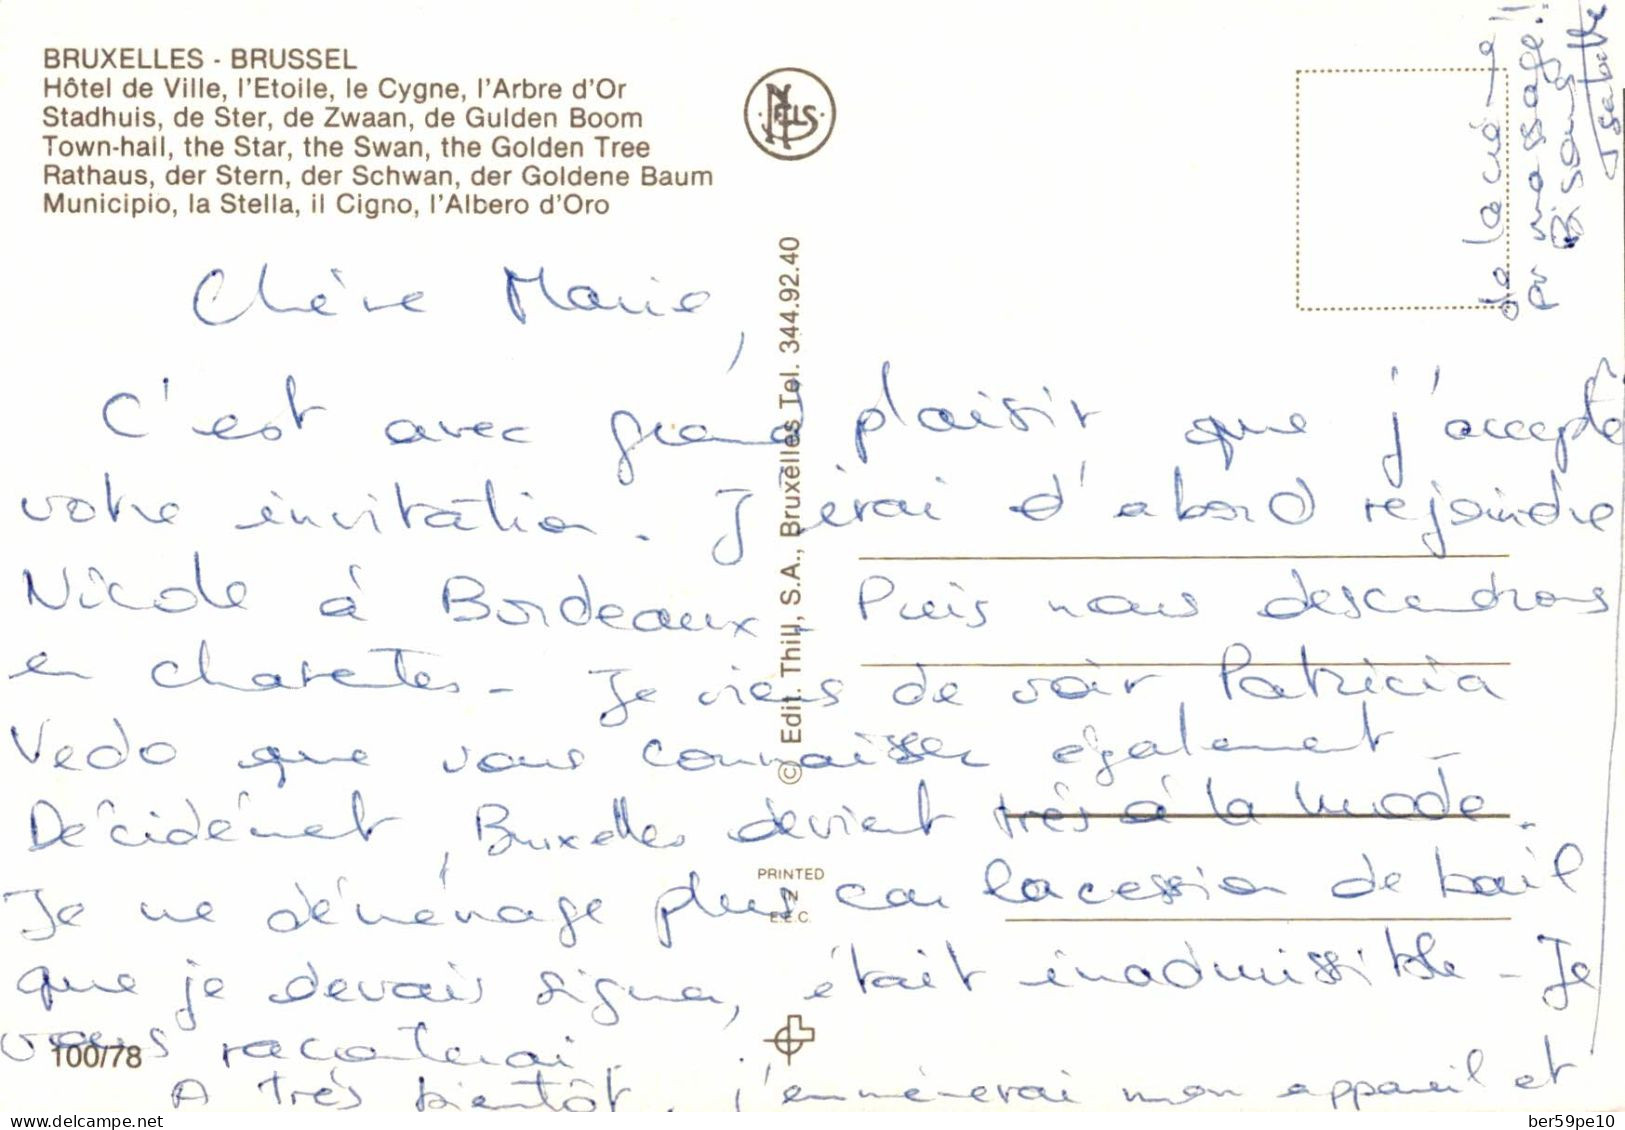 BRUXELLES - BRUSSEL
Hôtel de Ville, l'Etoile, le Cygne, l'Arbre d'Or
Stadhuis, de Ster, de Zwaan, de Gulden Boom
Town-hall, the Star, the Swan, the Golden Tree
Rathaus, der Stern, der Schwan, der Goldene Baum
Municipio, la Stella, il Cigno, l'Albero d'Oro
NELS
Chère Marie,
C'est avec grand plaisir que j'accepte
votre invitation. J'irai d'abord rejoindre
Nicole à Bordeaux - Puis nous descendrons
en charentes - Je viens de voir Patricia
Vedo que vous connaissez également -
Décidément, Bruxelles devient très à la mode.
Je ne déménage plus car la cession de bail
que je devais signer, était inadmissible - Je
vous raconterai.
A Très bientôt, j'emmènerai mon appareil et
de la crème
pr massage!!
Bisous
Isabelle
© Edit. Thill, S.A., Bruxelles Tel. 344.92.40
PRINTED
IN
E.E.C.
100/78
delcampe.net
ber59pe10